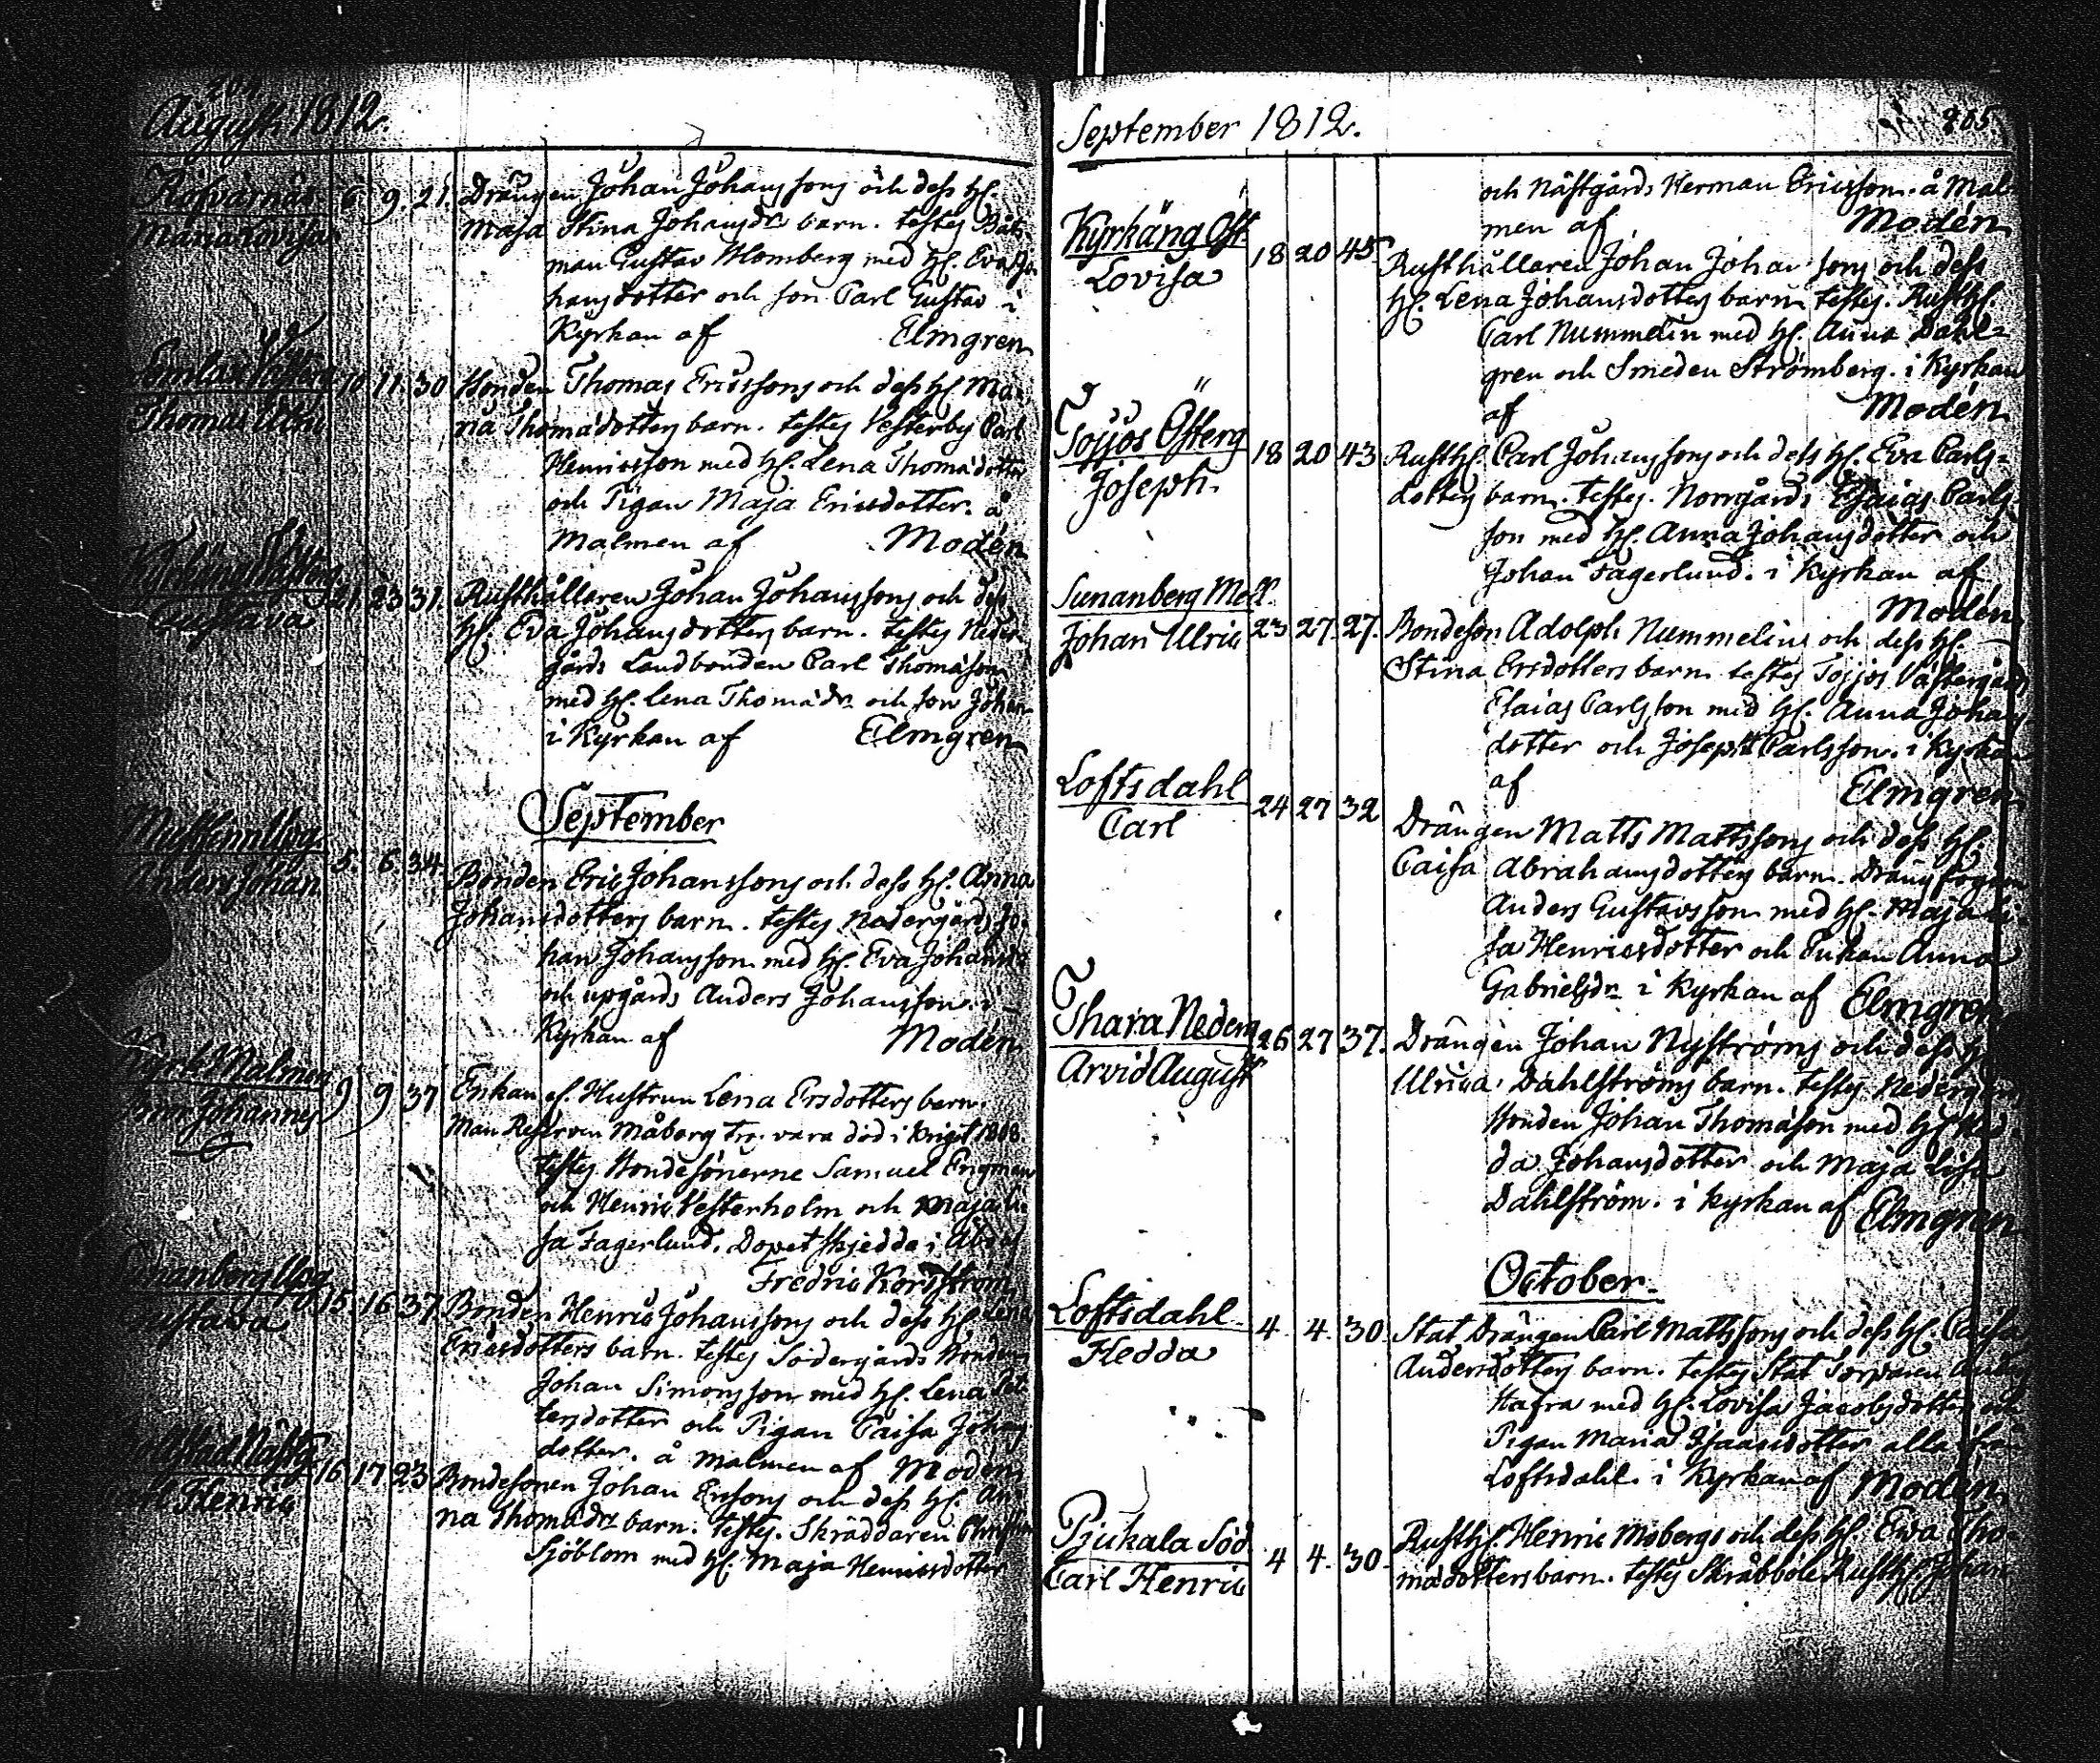 204
August 1812.
Röfvarnäs 6. 9. 21. Drängen Johan Johanssons och dess H.
Maria Lovisa Maja Stina Johansdr barn. testes Båts-
man Gustav Blomberg med H. Eva Jo
hansdotter och son Carl Gustav i
Kyrkan af Elmgren
10. 11. 30 Bonden Thomas Ericssons och dess H. Ma
Thomas na Thomädotters barn. testes Vesterby Carl
Henricsson med H. Lena Thomädotter
och Pigan Maja Ericsdotter. å
Malmen af Modén
21. 23 31. Rusthållaren Johan Johanssons och dess
Gustava H. Eva Johansdotters barn. testes Neder
gårds Landbonden Carl Thomäson
med H. Lena Thomädr och son Johan
i Kyrkan af Elmgren
September
5. 6. 34. Bonden Eric Johanssons och dess H. Anna
Anders Johan Johansdotters barn. testes Nedergårds Jo
han Johansson med H. Eva Johansdr
och upgårds Anders Johansson. i
Kyrkan af Modén
Kyrk Malmen 9 9 37 Enkan el. Hustrun Lena Ersdotters barn.
Johannes Man Reserven Måberg tr. vara död i kriget 1808.
testes Bondesönerne Samuel Engman
och Henric Vesterholm och Maja Li
sa Fagerlund. Dopet skjedde i Åbo af
Fredric Nordström
Sunanberg Upg. 15. 16 37. Bonden Henric Johanssons och dess H. Lena
Gustava Ericsdotters barn. testes Södergårds Bonden
Johan Simonsson med H. Lena Pet
tersdotter och Pigan Caisa Johans
dotter. å Malmen af Modén
16 17 23 Bondesonen Johan Erssons och dess H. An
Carl Henric na Thomädrs barn. testes. Skräddaren Christian
Sjöblom med H. Maja Henricsdotter
September 1812. 205
och Nästgårds Herman Ericsson. å Mal
men af Modén
Kyrkäng Öst 18 20 45. Rusthållaren Johan Johanssons och dess
Lovisa H. Lena Johansdotters barn testes. Rusth.
Carl Nummelin med H. Anna Dahl=
gren och Smeden Strömberg. i Kyrkan
af Modén
Tojjos Österg 18 20 43 Rusth. Carl Johanssons och dess H. Eva Carls=
Joseph. dotters barn. testes. Norrgårds Esaias Carls
son med H. Anna Johansdotter och
Johan Fagerlund. i Kyrkan af
Modén
Sunanberg Mell. 23 27. 27. Bondeson Adolph Nummelins och dess H.
Johan Ulric Stina Ersdotters barn testes Tojjos Västergårds
Esaias Carlsson med H. Anna Johans
dotter och Joseph Carlsson. i Kyrkan
af Elmgren
Loftsdahl 24 27 32 Drängen Matts Mattssons och dess H.
Carl Caisa Abrahamsdotters barn. Drängfogden
Anders Gustavsson med H. Maja Li
sa Henricsdotter och Enkan Anna
Gabrielsdr i Kyrkan af Elmgren
Thara Nederg 26 27 37. Drängen Johan Nyströms och dess H
Arvid August Ulrica Dahlströms barn. testes Nedergårds
Bonden Johan Thomäson med H. Hed
da Johansdotter och Maja Lisa
Dahlström. i Kyrkan af Elmgren
October
Loftsdahl. 4. 4. 30 Stat Drängen Carl Mattssons och dess H. Caisa
Hedda Andersdotters barn. testes Stat Torparen Anders
Hafra med H. Lovisa Jacobsdotter och
Pigan Maria Isaacsdotter alla från
Loftsdahl. i Kyrkan af Modén
Pjukala Söd. 4 4. 30. Rusth. Henric Mobergs och dess H. Eva Tho
Carl Henric mädotters barn. testes Skräbböle Rusth. Johan